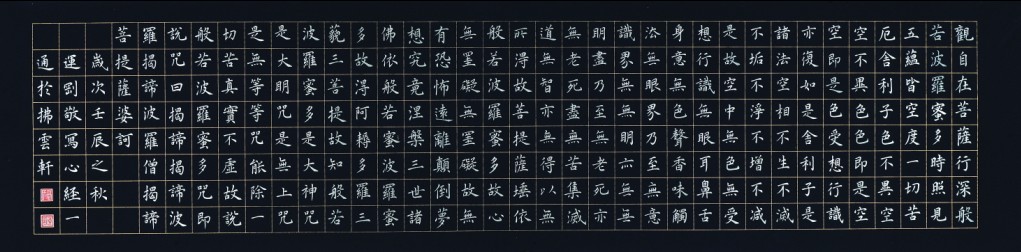 觀自在菩薩行深般
若波羅蜜多時照見
五蘊皆空度一切苦
厄舍利子色不異空
空不異色色即是空
空即是色受想行識
亦復如是舍利子是
諸法空相不生不滅
不垢不淨不增不減
是故空中無色無受
想行識無眼耳鼻舌
身意無色聲香味觸
法無眼界乃至無意
識界無無明亦無無
明盡乃至無老死亦
無老死盡無苦集滅
道無智亦無得以無
所得故菩提薩埵依
般若波羅蜜多故心
無罣礙無罣礙故無
有恐怖遠離顛倒夢
想究竟涅槃三世諸
佛依般若蜜波羅蜜
多故得阿耨多羅三
藐三菩提故知般若
波羅蜜多是大神咒
是大明咒是無上咒
是無等等咒能除一
切苦真實不虛故說
般若波羅蜜多咒即
說咒曰揭諦揭諦波
羅揭諦波羅僧揭諦
菩提薩婆訶
歲次壬辰之秋
運劉敬寫心經一
通於拂雲軒